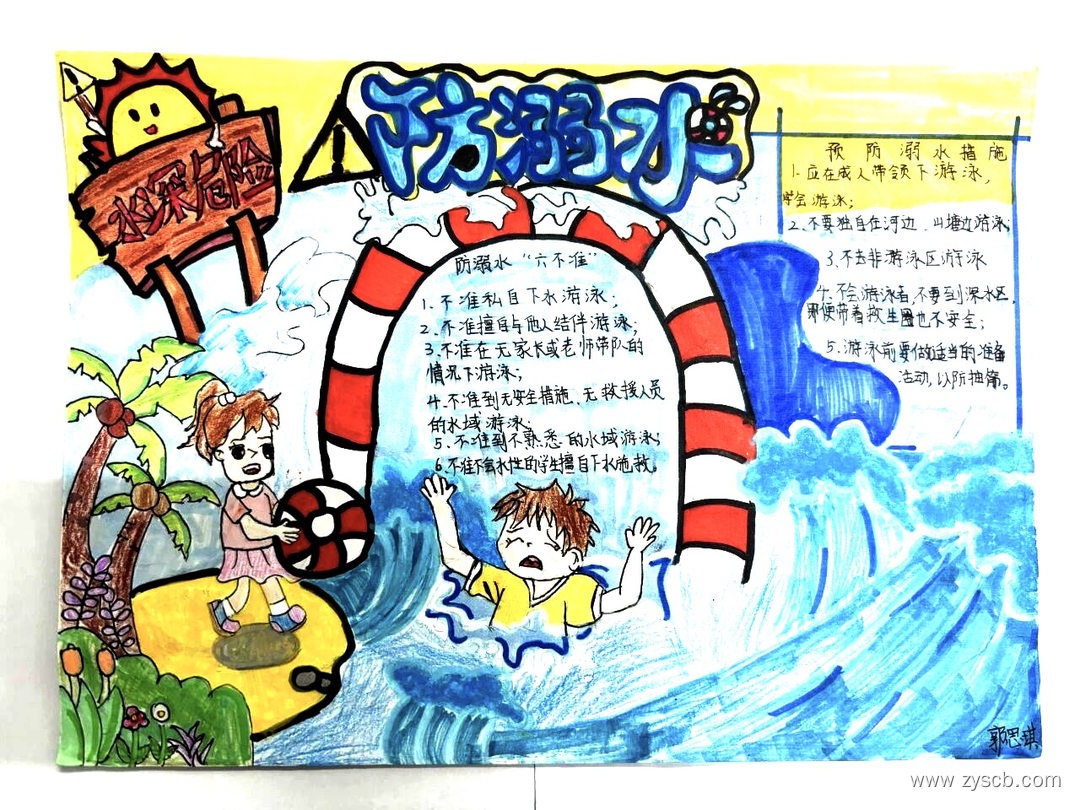 防溺水
水深危险
防溺水“六不准”
1、不准私自下水游泳；
2、不准擅自与他人结伴游泳；
3、不准在无家长或老师带队的
情况下游泳；
4、不准到无安全措施、无救援人员
的水域游泳；
5、不准到不熟悉的水域游泳；
6、不准不会水性的学生擅自下水施救。
预防溺水措施
1、应在成人带领下游泳，
学会游泳；
2、不要独自在河边、山塘边游泳；
3、不去非游泳区游泳
4、不会游泳者，不要到深水区，
即使带着救生圈也不安全；
5、游泳前要做适当的准备
活动，以防抽筋。
郭思琪
www.zyscb.com